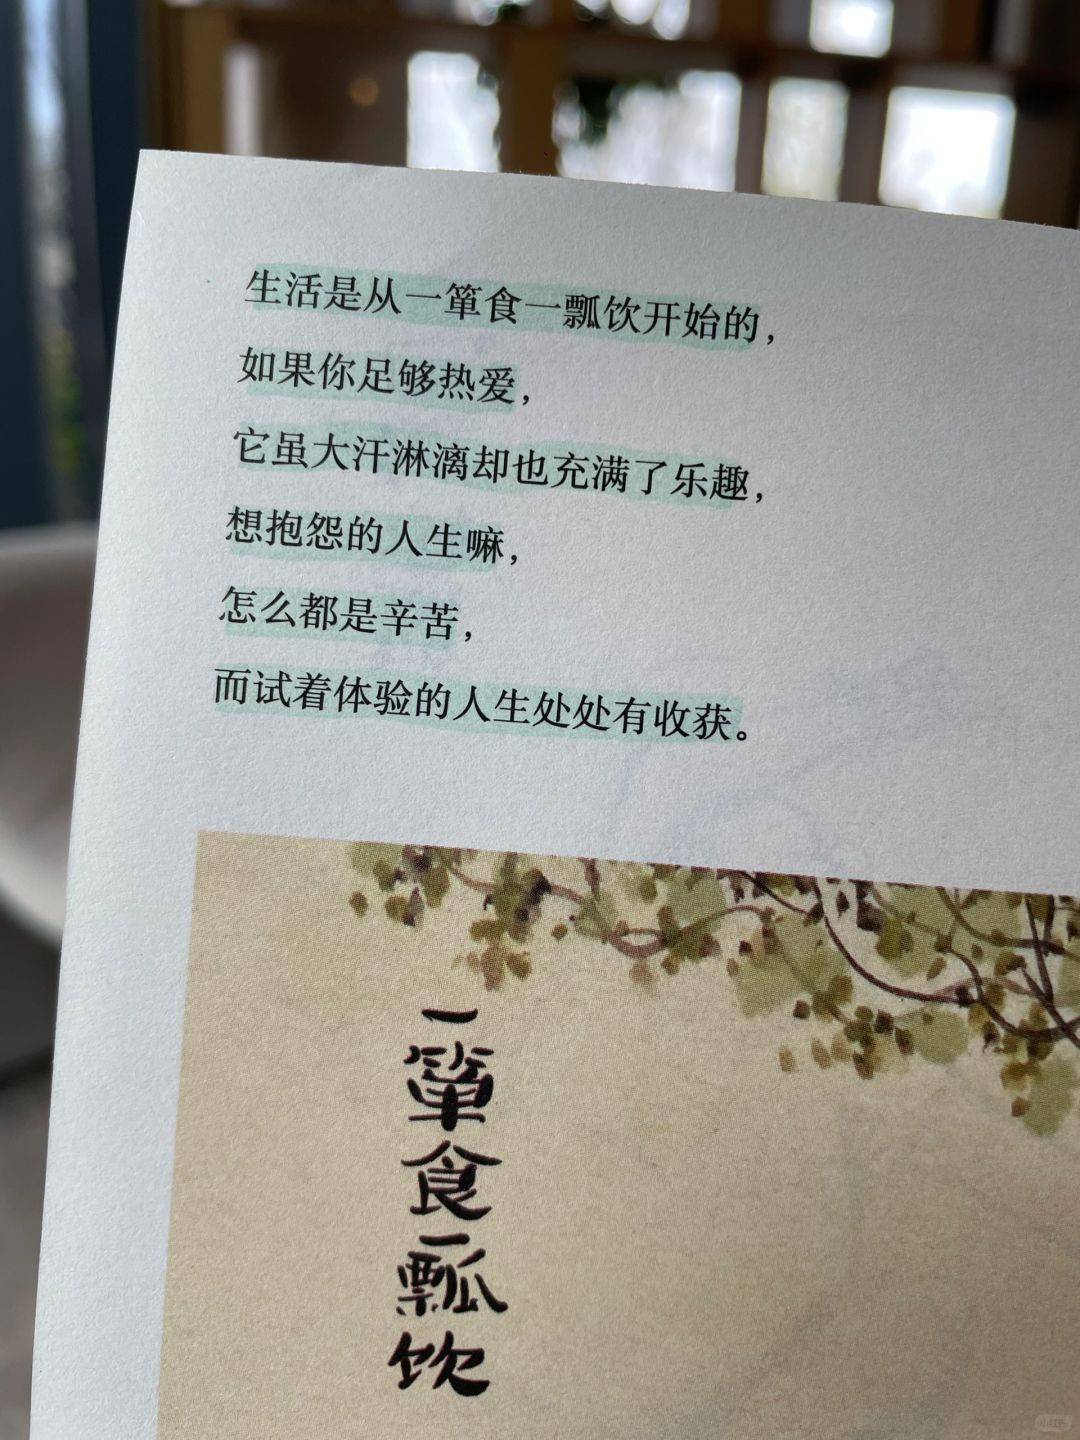 生活是从一箪食一瓢饮开始的，
如果你足够热爱，
它虽大汗淋漓却也充满了乐趣，
想抱怨的人生嘛，
怎么都是辛苦，
而试着体验的人生处处有收获。
一箪食一瓢饮
小红书